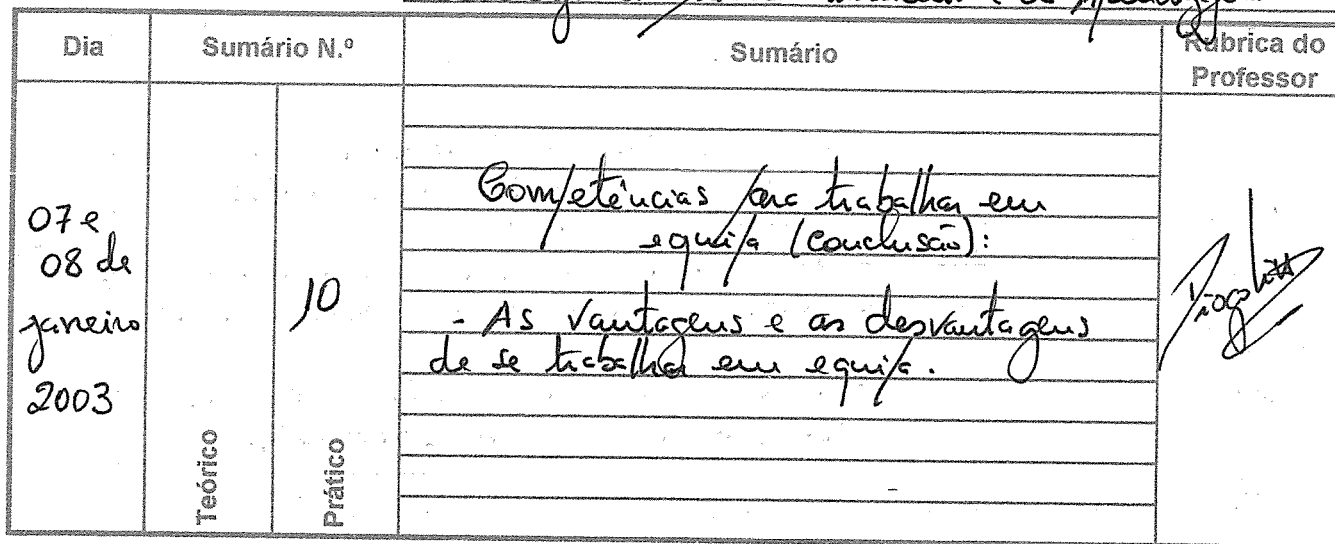 Dia
Sumário N.º
Sumário
Rúbrica do
Professor
07 e
08 de
janeiro
2003
Teórico
10
Prático
Competências para trabalhar em
equipa (conclusão):
- As vantagens e as desvantagens
de se trabalhar em equipa.